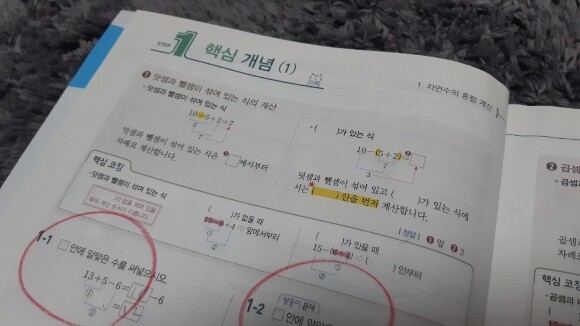 STEP 1 핵심 개념 (1)
1. 자연수의 혼합 계산
❶ 덧셈과 뺄셈이 섞여 있는 식의 계산
• 덧셈과 뺄셈이 섞여 있는 식
10-5+2=7
5
7
덧셈과 뺄셈이 섞여 있는 식은 ❶□에서부터
차례로 계산합니다.
• ( )가 있는 식
10-(5+2)=❷
덧셈과 뺄셈이 섞여 있고 ( )가 있는 식에
서는 ( ) 안을 먼저 계산합니다.
[정답] ❶ 앞 ❷ 3
핵심 코칭
• 덧셈과 뺄셈이 섞여 있는 식
( )가 없을 때
⇨ 앞에서부터
①
②
( )가 있을 때
15-(6+4) ⇨ ( ) 안부터
①
②
1-1 □ 안에 알맞은 수를 써넣으시오.
13+5-6=□-6
①
②
=□
1-2 쌍둥이 문제
□ 안에 알맞은
❷ 곱셈
• 곱셈
차례로
핵심 코